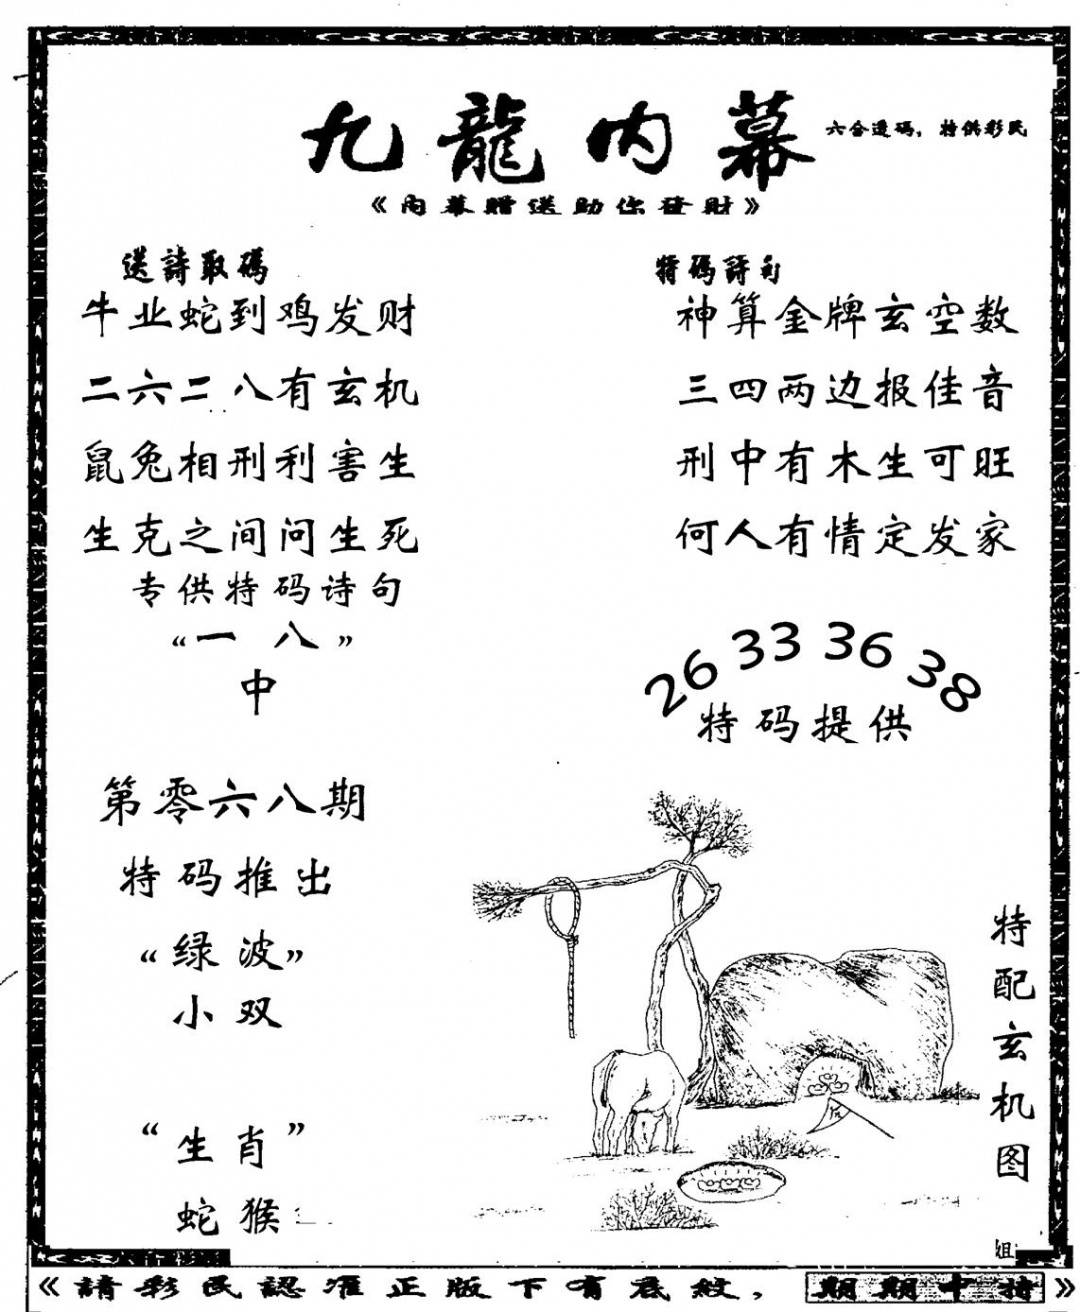 九龍内幕
六合透码，特供彩民
《内幕贈送助你發財》
送詩取碼
牛业蛇到鸡发财
二六二八有玄机
鼠兔相刑利害生
生克之间问生死
专供特码诗句
“一八”
中
特碼詩句
神算金牌玄空数
三四两边报佳音
刑中有木生可旺
何人有情定发家
26 33 36 38
特码提供
第零六八期
特码推出
“绿波”
小双
“生肖”
蛇猴
特配玄机图
姐
《請彩民認准正版下有底紋，期期中特》